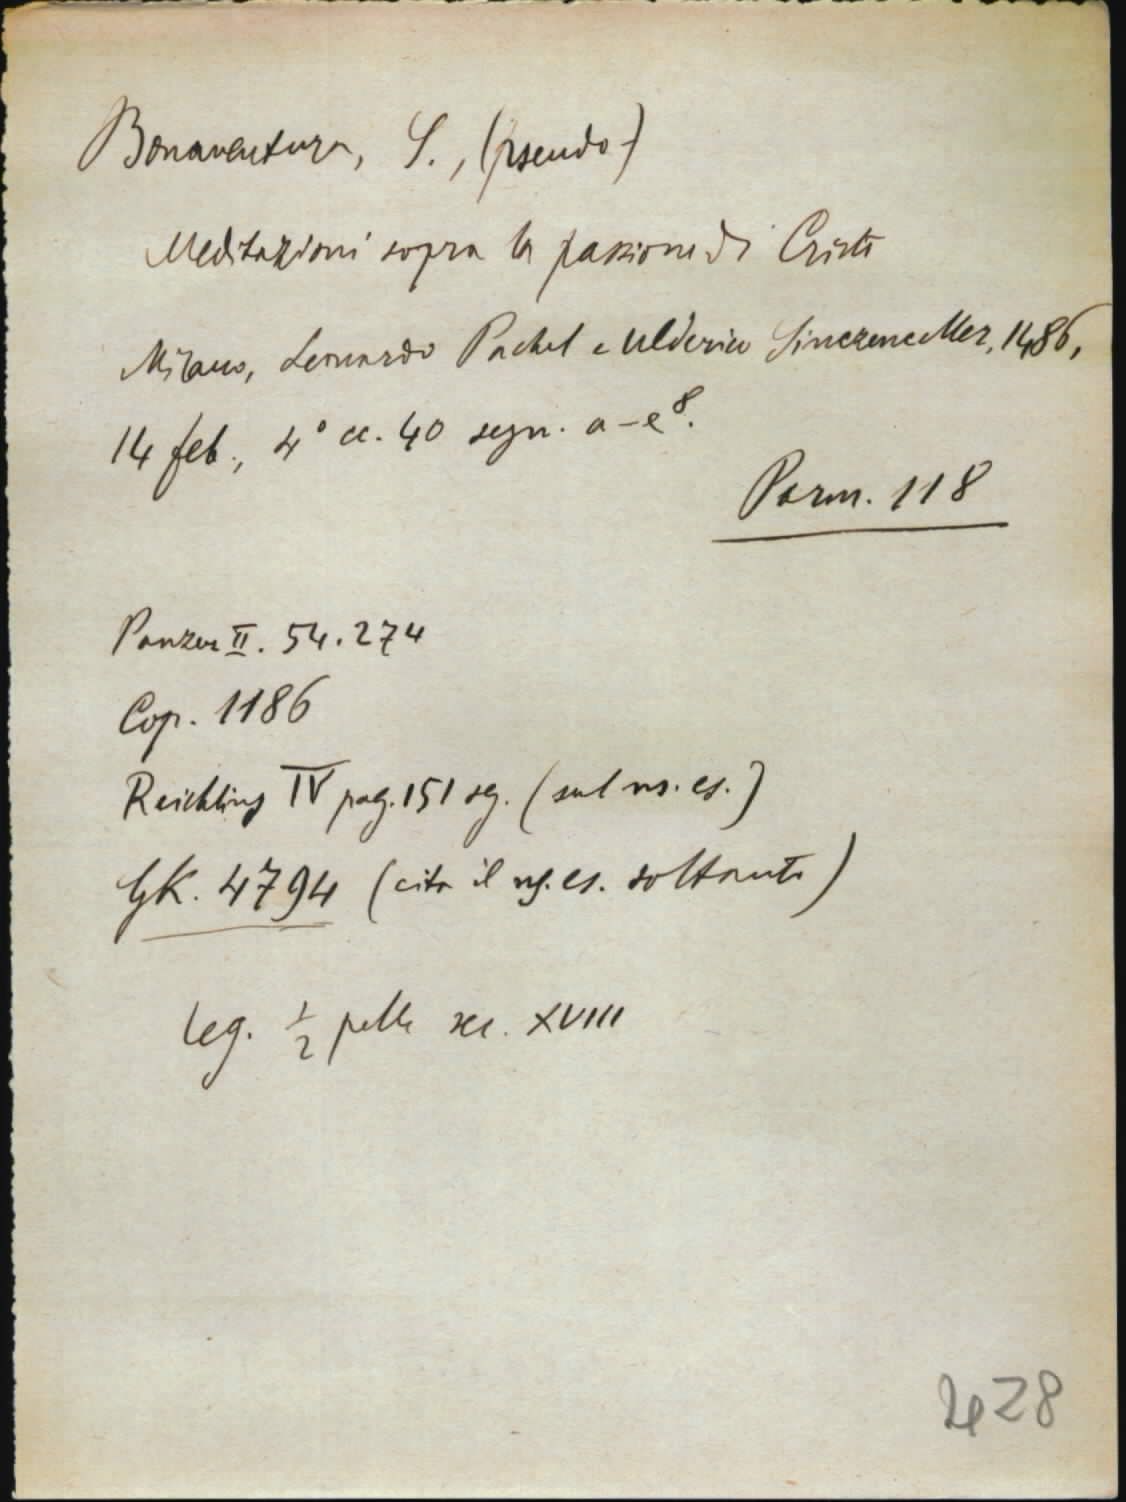 Bonaventura, S., (pseudo-)
Meditazioni sopra la passione di Cristo
Milano, Leonardo Pachel e Ulderico Sinczenceller, 1486,
14 feb., 4° cc. 40 segn. a-e⁸.
Parm. 118
Panzer II. 54. 274
Cop. 1186
Reichling IV pag. 151 sg. (sul ns. es.)
GK. 4794 (cita il ns. es. soltanto)
Leg. ½ pelle sec. XVIII
428